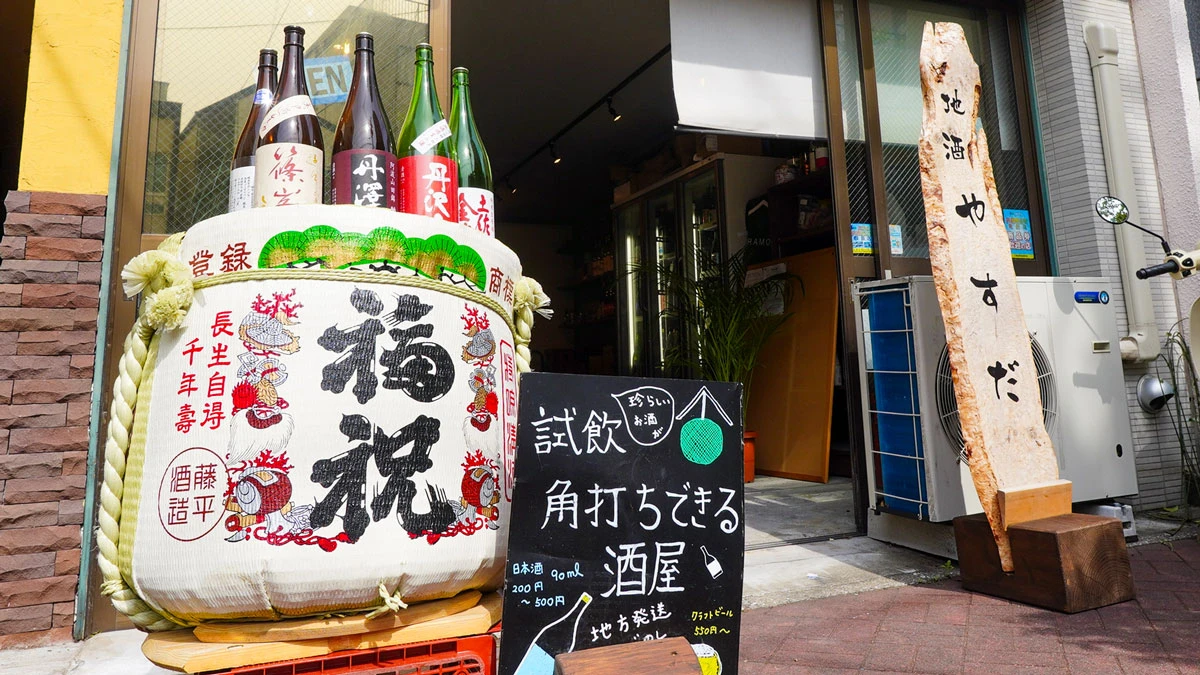 EN
篠峯
丹澤
丹沢
登録
商標
福祝
長生自得
千年壽
藤平
酒造
試飲
珍らしい
お酒
が
角打ちできる
酒屋
日本酒
200円 90ml
～500円
地方発送
クラフトビール
550円～
地酒 やすだ